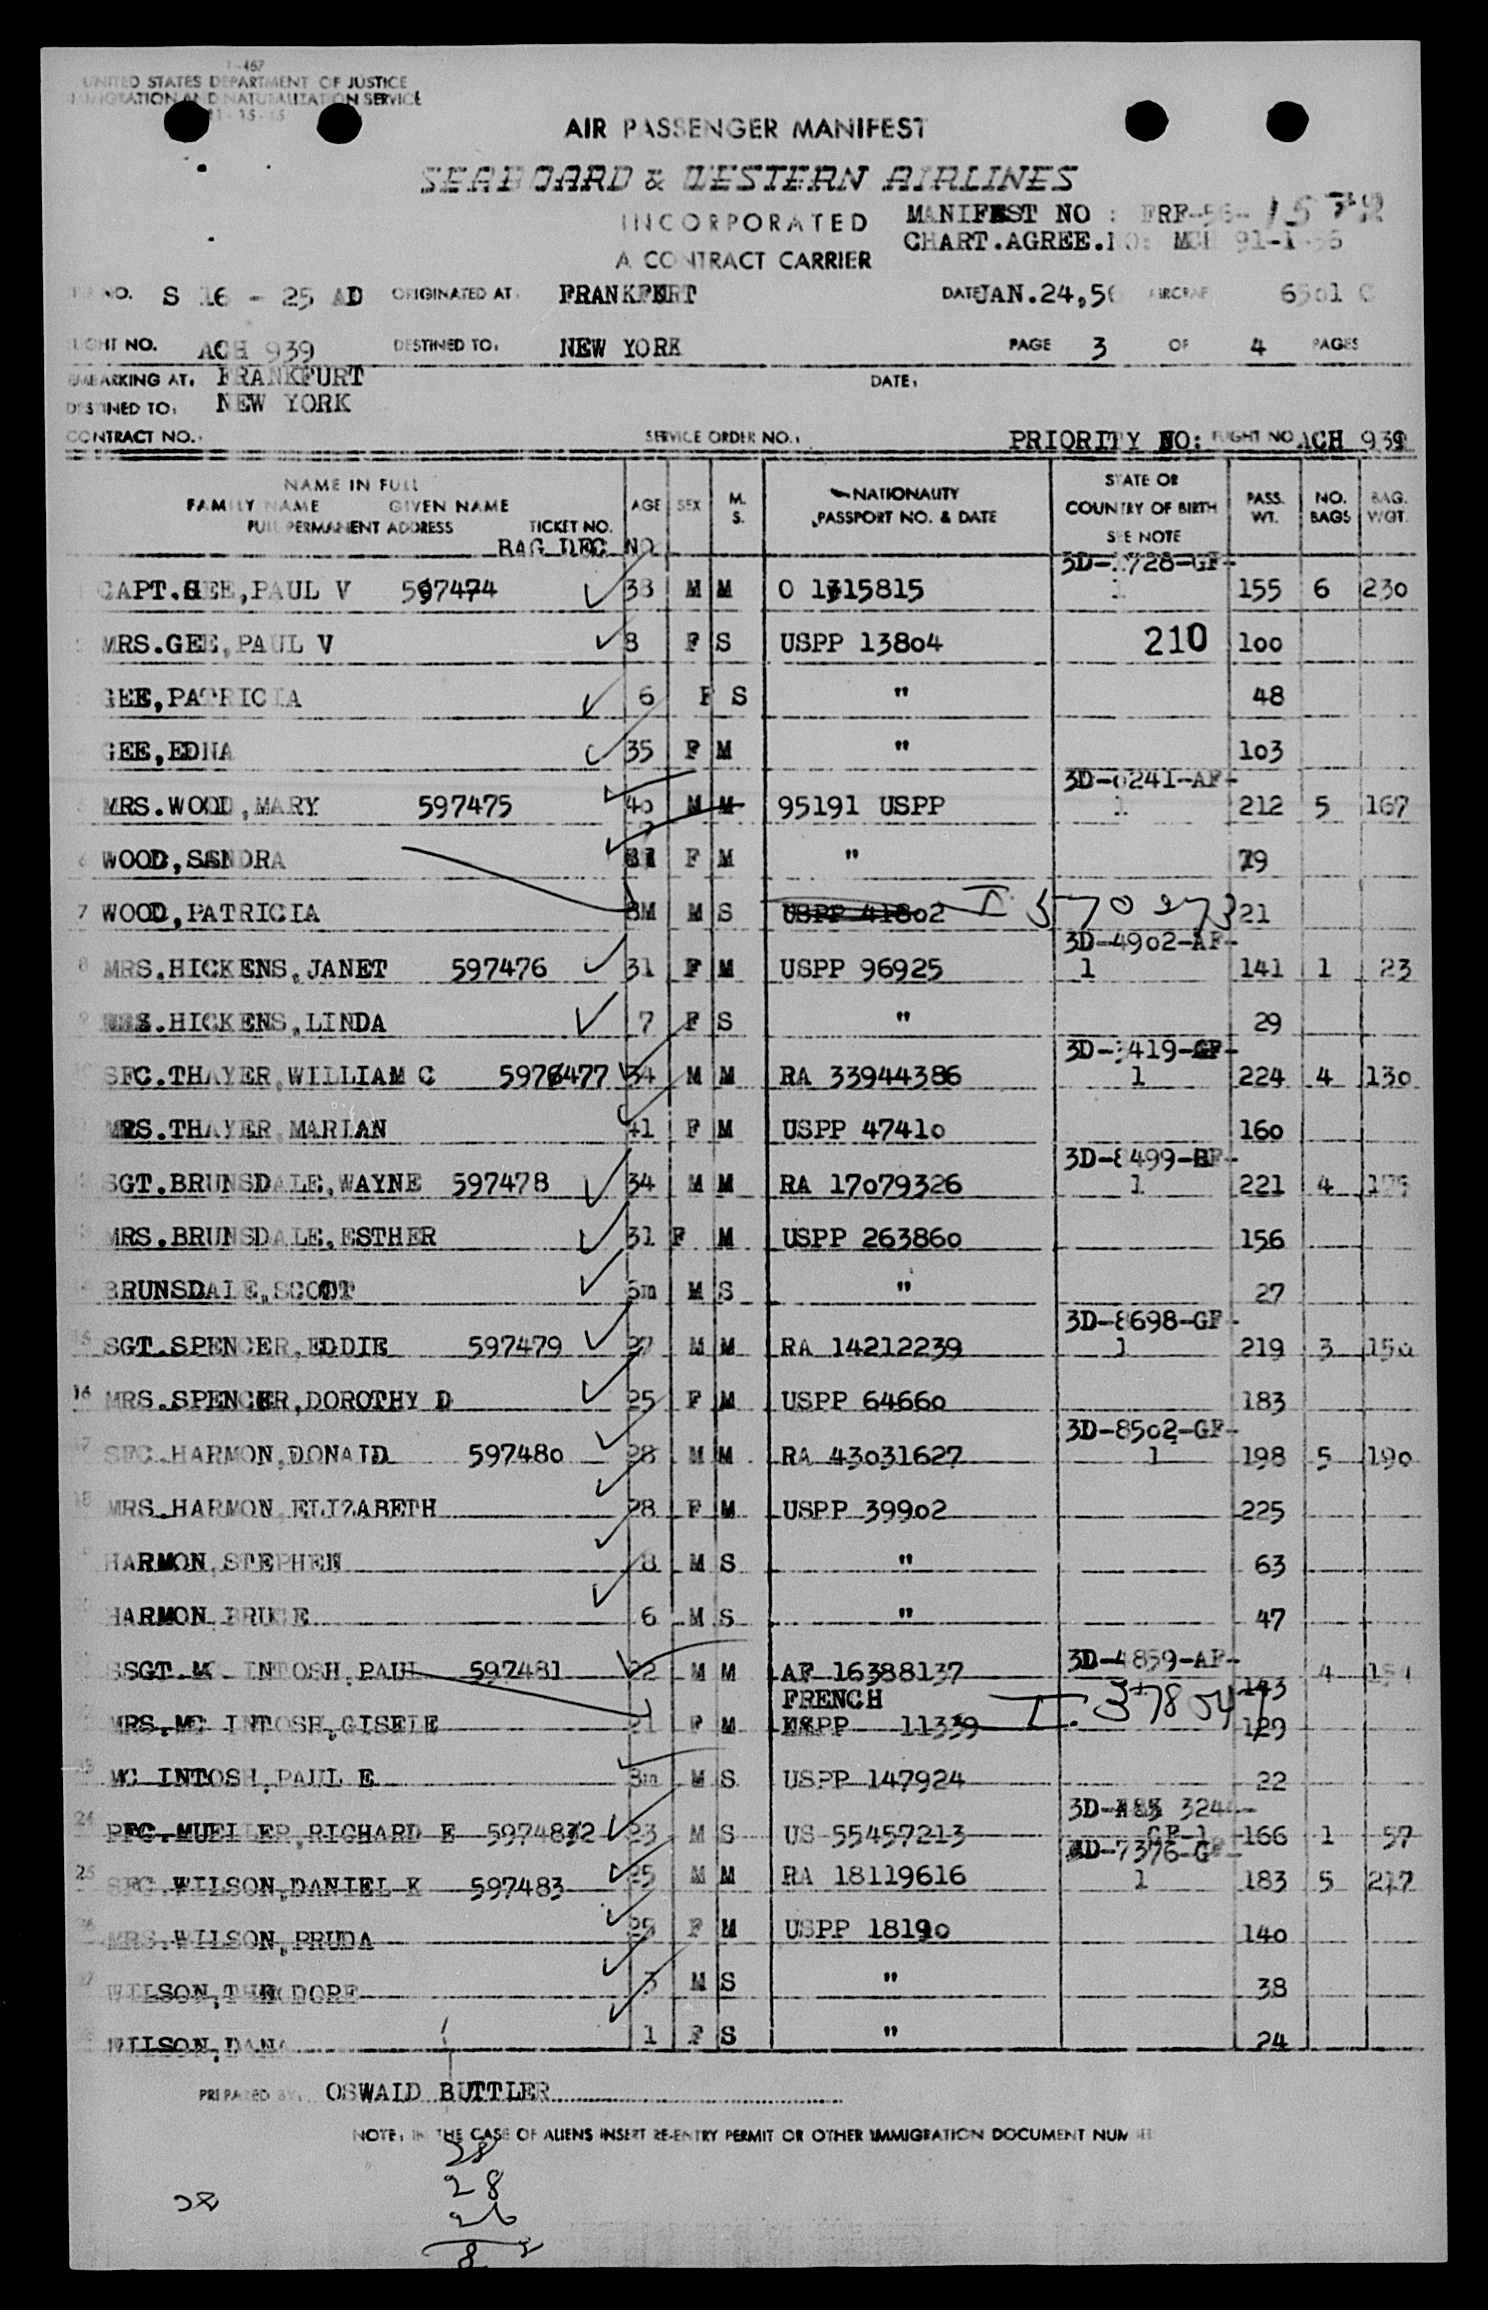 I-467
UNITED STATES DEPARTMENT OF JUSTICE
IMMIGRATION AND NATURALIZATION SERVICE
AIR PASSENGER MANIFEST
SEABOARD & WESTERN AIRLINES
INCORPORATED MANIFEST NO : FRF-56-
A CONTRACT CARRIER CHART.AGREE.NO: MCH 91-1-56
NO. S 16 - 25 AD ORIGINATED AT: FRANKFURT DATE JAN.24,56 AIRCRAFT C
FLIGHT NO. ACH 939 DESTINED TO: NEW YORK PAGE 3 OF 4 PAGES
EMBARKING AT: FRANKFURT DATE:
DESTINED TO: NEW YORK
CONTRACT NO.: SERVICE ORDER NO.: PRIORITY NO: FLIGHT NO ACH 939
NAME IN FULL
FAMILY NAME GIVEN NAME AGE SEX M. S. NATIONALITY PASSPORT NO. & DATE STATE OR COUNTRY OF BIRTH SEE NOTE PASS. WT. NO. BAGS BAG. WGT.
FULL PERMANENT ADDRESS TICKET NO.
BAG DEC NO
3D- 728-GF-
CAPT.GEE,PAUL V 597474 38 M M O 1315815 1 155 6 230
MRS.GEE,PAUL V 8 F S USPP 13804 210 100
GEE,PATRICIA 6 F S " 48
GEE,EDNA 35 F M " 103
3D-0241-AF-
MRS.WOOD,MARY 597475 40 M M 95191 USPP 1 212 5 167
6 WOOD,SANDRA F M "
7 WOOD,PATRICIA 8M M S USPP 41802 I 570273 21
3D-4902-AF-
8 MRS.HICKENS,JANET 597476 31 F M USPP 96925 1 141 1 23
9 .HICKENS,LINDA 7 F S " 29
3D-3419-GF-
SFC.THAYER,WILLIAM C 597477 34 M M RA 33944386 1 224 4 130
MRS.THAYER,MARIAN 41 F M USPP 47410 160
3D-8499-BF-
SGT.BRUNSDALE,WAYNE 597478 34 M M RA 17079326 1 221 4
MRS.BRUNSDALE,ESTHER 31 F M USPP 263860 156
BRUNSDALE,SCOTT M S " 27
3D-8698-GF-
15 SGT.SPENCER,EDDIE 597479 27 M M RA 14212239 1 219 3 150
16 MRS.SPENCER,DOROTHY D 25 F M USPP 64660 183
3D-8502-GF-
17 SFC.HARMON,DONALD 597480 28 M M RA 43031627 1 198 5 190
18 MRS.HARMON,ELIZABETH 28 F M USPP 39902 225
HARMON,STEPHEN 8 M S " 63
HARMON,BRUCE 6 M S " 47
3D-4859-AF-
SSGT.MC INTOSH,PAUL 597481 22 M M AF 16388137 143 4
FRENCH
MRS.MC INTOSH,GISELE 21 F M 11339 I. 129
MC INTOSH,PAUL E 8m M S USPP 147924 22
3D- 324 -
24 PFC.MUELLER,RICHARD E 597482 23 M S US 55457213 GF-1 166 1 57
3D-7376-GF-
25 SFC.WILSON,DANIEL K 597483 25 M M RA 18119616 1 183 5 217
26 MRS.WILSON,PRUDA 25 F M USPP 18190 140
27 WILSON,THEODORE 3 M S " 38
WILSON,DANA 1 F S " 24
PREPARED BY: OSWALD BUTTLER
NOTE: IN THE CASE OF ALIENS INSERT RE-ENTRY PERMIT OR OTHER IMMIGRATION DOCUMENT NUMBER
28
28
28 26
8 2